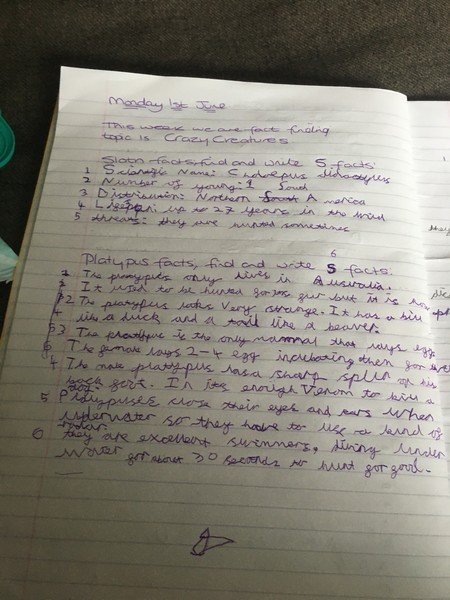 Monday 1st June
This week we are fact finding
topic is Crazy Creatures
Sloth facts, find and write 5 facts:
1 Scientific Name: Choloepus didactylus
2 Number of young: 1 South
3 Distribution: Northern South America
4 up to 27 years in the wild
5 threats: they are hunted sometimes
6
Platypus facts, find and write 5 facts:
1 The platypus only lives in Australia.
2 It used to be hunted for its fur but it is now
2 The platypus looks very strange. It has a bill
4 like a duck and a tail like a beaver.
3 The platypus is the only mammal that lays egg
6 The female lays 2-4 egg incubating them for
4 The male platypus has a sharp on his
back foot. In its enough Venom to kill a
5 Platypuses close their eyes and ears when
underwater so they have to use a kind of
radar.
6 they are excellent swimmers, diving under
water for about 30 seconds to hunt for food.